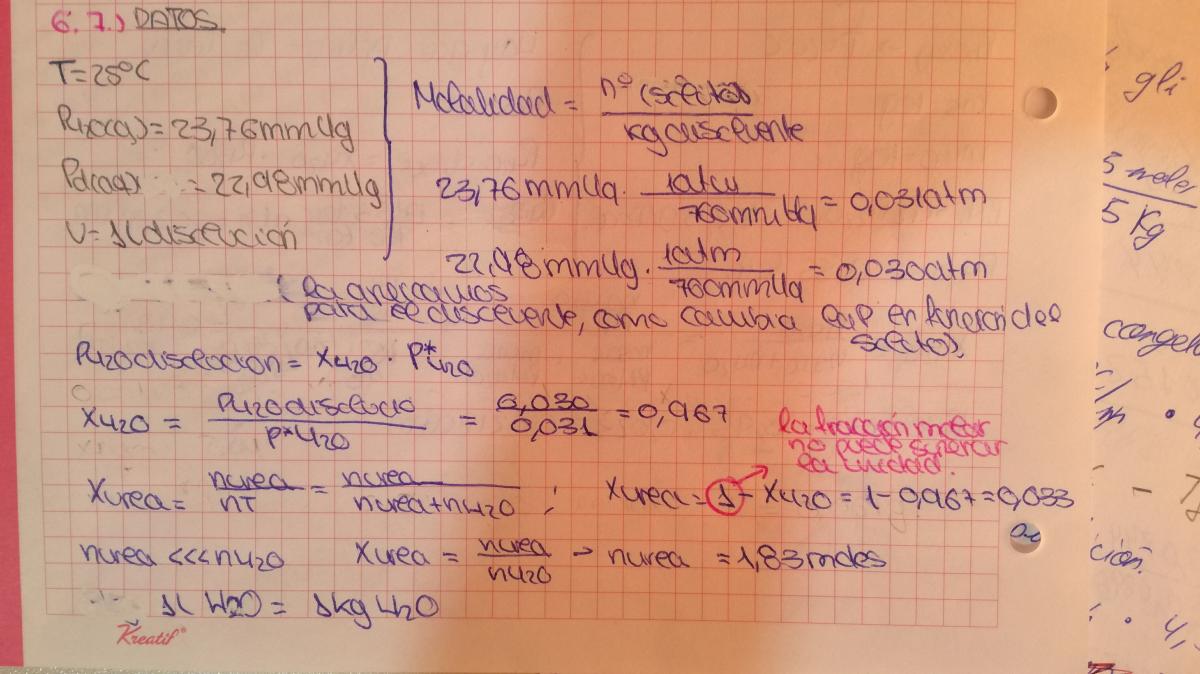 6.7.) DATOS.
T=25ºC
PH2O(g)=23,76mmHg
Pd(aq) =22,98mmHg
V=1l disolución
Molalidad = nº (soluto) / kg disolvente
23,76 mmHg · 1atm / 760mmHg = 0,031atm
22,98 mmHg · 1atm / 760mmHg = 0,030atm
para el disolvente, como cambia la P en función del
soluto).
PH2O disolucion = XH2O · P*H2O
XH2O = PH2O disolucio / P*H2O = 0,030 / 0,031 = 0,967
la fracción molar
no puede superar
la unidad.
Xurea = nurea / nT = nurea / nurea+nH2O ; Xurea = 1 - XH2O = 1-0,967=0,033
nurea <<< nH2O Xurea = nurea / nH2O → nurea = 1,83 moles
1l H2O = 1kg H2O
Kreatif
gli
5 moles
5 Kg
congel
m
- 7
ción.
· 4,